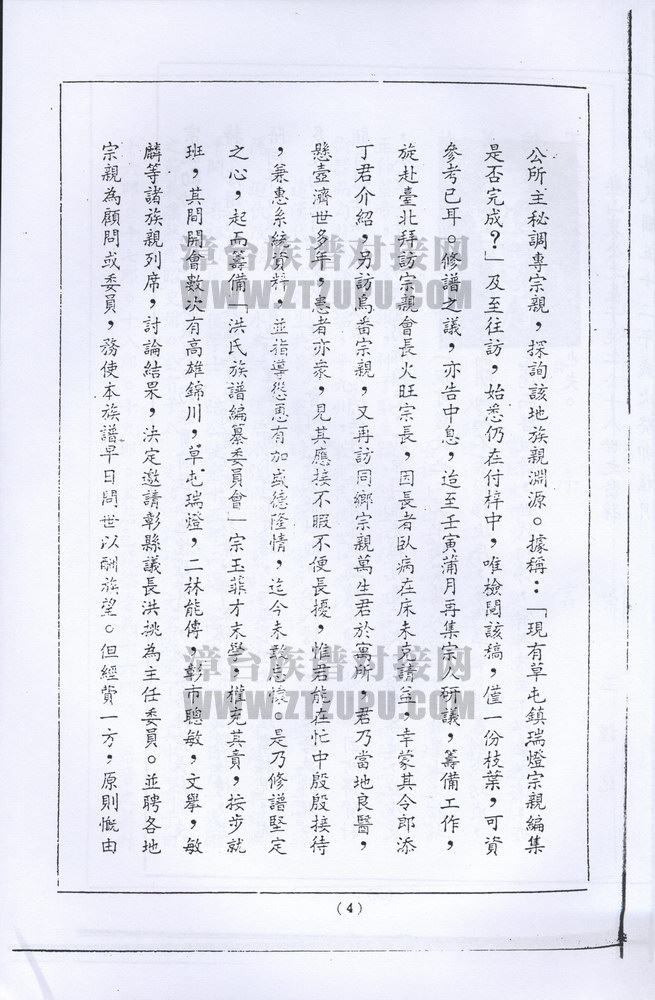 公所主秘調專宗親，探詢該地族親淵源。據稱：「現有草屯鎮瑞燈宗親編集
是否完成？」及至往訪，始悉仍在付梓中，唯檢閱該稿，僅一份枝葉，可資
參考已耳。修譜之議，亦告中息，迨至壬寅蒲月再集宗人研議，籌備工作，
旋赴臺北拜訪宗親會長火旺宗長，因長者臥病在床未克請益，幸蒙其令郎添
丁君介紹，另訪烏番宗親，又再訪同鄉宗親萬生君於寓所，君乃當地良醫，
懸壺濟世多年，患者亦眾，見其應接不暇不便長擾，惟君能在忙中殷殷接待
，兼惠系統資料，並指導慫恿有加盛德隆情，迄今未敢忘懷。是乃修譜堅定
之心，起而籌備「洪氏族譜編纂委員會」宗玉菲才末學，權充其責，按步就
班，其間開會數次有高雄錦川，草屯瑞燈，二林能傳，彰市聰敏，文舉，敏
麟等諸族親列席，討論結果，決定邀請彰縣議長洪挑為主任委員。並聘各地
宗親為顧問或委員，務使本族譜早日問世以酬族望。但經費一方，原則慨由
(4)
漳台族谱对接网
WWW.ZTZUPU.COM
漳台族谱对接网
WWW.ZTZUPU.COM